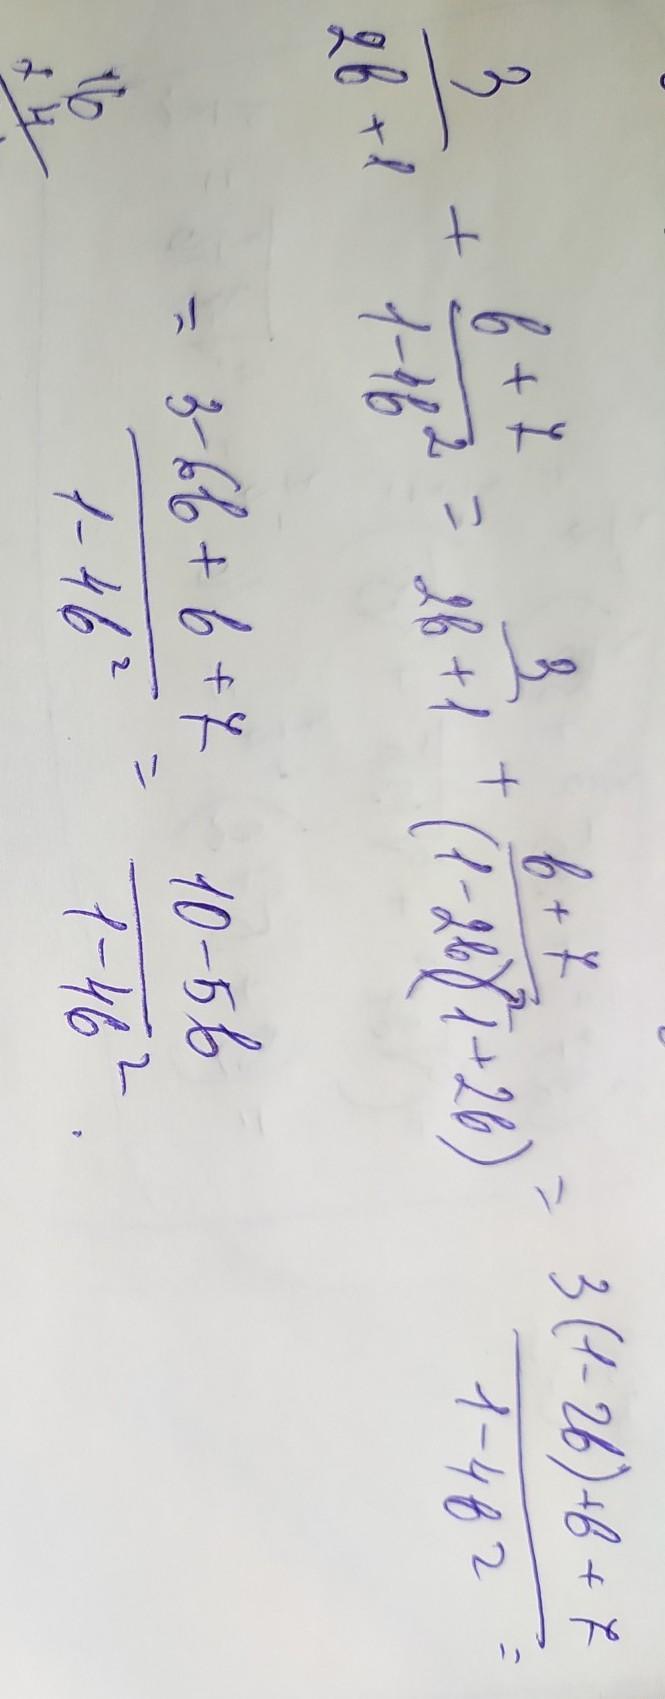 3/(2b+1) + (b+7)/(1-4b²) = 3/(2b+1) + (b+7)/((1-2b)(1+2b)) = (3(1-2b)+b+7)/(1-4b²) =
= (3-6b+b+7)/(1-4b²) = (10-5b)/(1-4b²).
16
+4